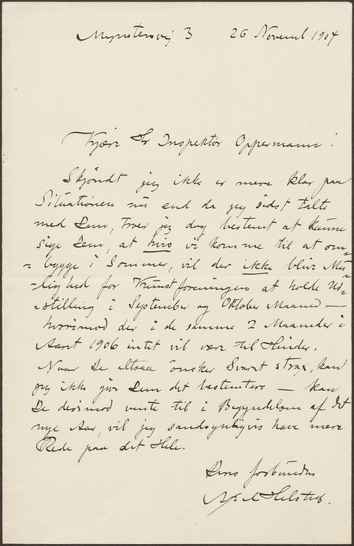 Mynstersvej 3 26 Novemb 1904
Kjære Hr. Inspektør Oppermann!
Skjøndt jeg ikke er mere klar paa
Situationen nu end da jeg sidst talte
med Dem, troer jeg dog bestemt at kunne
sige Dem, at hvis vi komme til at om-
-bygge i Sommer, vil der ikke blive Mu-
-lighed for Kunstforeningen at holde Ud-
-stilling i September og Oktober Maaned —
hvorimod der i de samme 2 Maaneder i
Aaret 1906 intet vil være til Hinder.
Naar De altsaa ønsker Svar strax, kan
jeg ikke give Dem det bestemtere — kan
De derimod vente til i Begyndelsen af det
nye Aar, vil jeg sandsynligvis have mere
Rede paa det Hele.
Deres forbundne